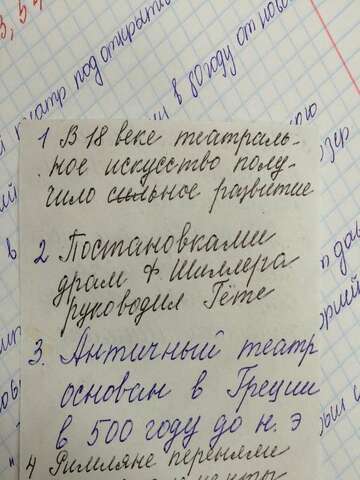 1 В 18 веке театраль-
ное искусство полу-
чило сильное развитие
2 Постановками
драм Ф. Шиллера
руководил Гёте
3. Античный театр
основан в Греции
в 500 году до н. э
4 Римляне переняли
театр под открытым
в 80 году от